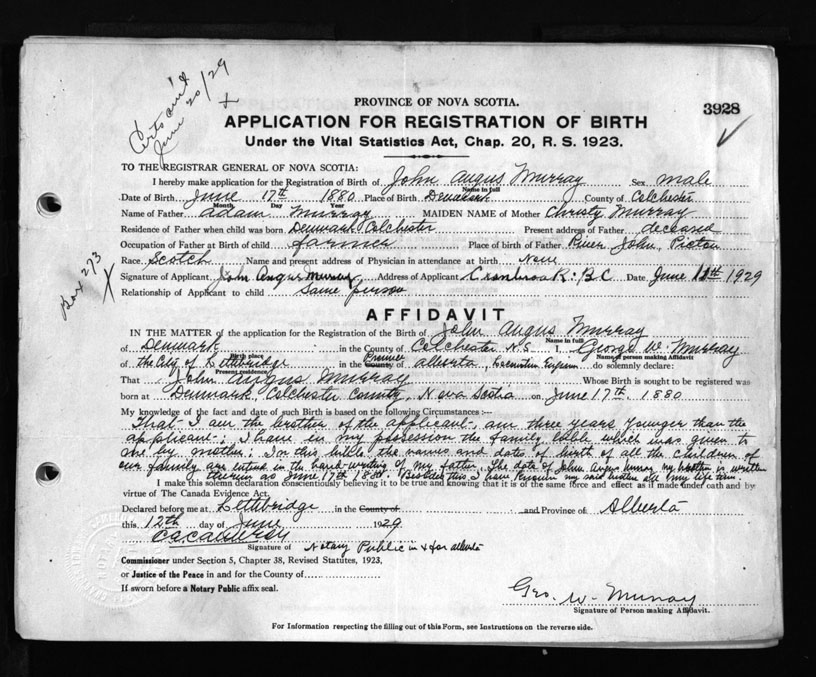 Certs ain't
June 20/29
X
PROVINCE OF NOVA SCOTIA.
3928
APPLICATION FOR REGISTRATION OF BIRTH
Under the Vital Statistics Act, Chap. 20, R. S. 1923.
TO THE REGISTRAR GENERAL OF NOVA SCOTIA:
I hereby make application for the Registration of Birth of John Angus Murray Sex male
Name in full
Date of Birth June 17th 1880 Place of Birth Denmark County of Colchester
Month. Day Year
Name of Father Adam Murray MAIDEN NAME of Mother Christy Murray
Residence of Father when child was born Denmark Colchester Present address of Father deceased
Occupation of Father at Birth of child farmer Place of birth of Father River John, Pictou
Race Scotch Name and present address of Physician in attendance at birth None
Box 273
X
Signature of Applicant John Angus Murray Address of Applicant Cranbrook: BC Date June 1929
Relationship of Applicant to child Same person
AFFIDAVIT
IN THE MATTER of the application for the Registration of the Birth of John Angus Murray
Name in full
of Denmark in the County of Colchester N.S. I, George W. Murray
Birth place Name of person making Affidavit
of the City of Lethbridge in the County of Province Alberta, do solemnly declare:
Present residence
That John Angus Murray Whose Birth is sought to be registered was
born at Denmark Colchester County, Nova Scotia on June 17th 1880
My knowledge of the fact and date of such Birth is based on the following Circumstances :—
That I am the brother of the applicant am three years younger than the
applicant; I have in my possession the family bible which was given to
me by mother; In this bible the names and dates of birth of all the children of
our family are entered in the hand-writing of my father. The date of John Angus Murray my brother is written
therein as June 17th 1880. Besides this I have known my said brother all my life time.
I make this solemn declaration conscientiously believing it to be true and knowing that it is of the same force and effect as if made under oath and by
virtue of The Canada Evidence Act.
Declared before me at Lethbridge in the County of and Province of Alberta
this, 12th day of June 1929
Signature of Notary Public in & for Alberta
Commissioner under Section 5, Chapter 38, Revised Statutes, 1923,
or Justice of the Peace in and for the County of
If sworn before a Notary Public affix seal.
Geo. W. Murray
Signature of Person making Affidavit.
For Information respecting the filling out of this Form, see Instructions on the reverse side.